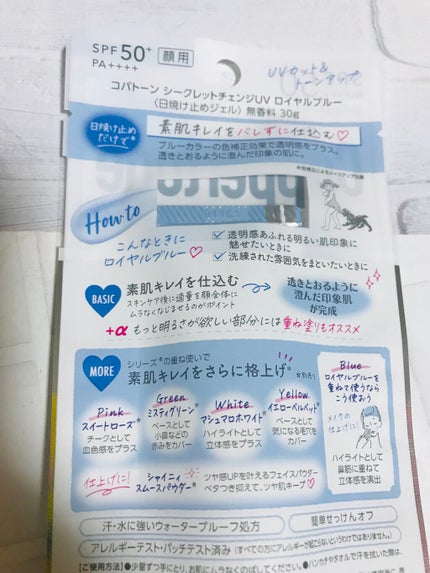 SPF50+ 顔用
PA++++
UVカット&
トーンアップ
コパトーン シークレットチェンジUV ロイヤルブルー
〈日焼け止めジェル〉 無香料 30g
日焼け止め
だけで*
素肌キレイをバレずに仕込む♡
ブルーカラーの色補正効果で透明感をプラス。
透きとおるように澄んだ印象の肌に。
*色補正によるメイクアップ効果
How to
こんなときに
ロイヤルブルー♡
透明感あふれる明るい肌印象に
魅せたいときに
洗練された雰囲気をまといたいときに
BASIC
素肌キレイを仕込む
スキンケア後に適量を顔全体に
ムラなくなじませるのがポイント
透きとおるように
澄んだ印象肌
が完成
+α もっと明るさが欲しい部分には重ね塗りもオススメ
MORE
シリーズ*の重ね使いで
素肌キレイをさらに格上げ
*別売り
Pink
スイートローズ*
チークとして
血色感をプラス
Green
ミスティグリーン*
ベースとして
小鼻などの
赤みをカバー
White
マシュマロホワイト*
ハイライトとして
立体感をプラス
Yellow
イエローベルベット*
ベースとして
気になる毛穴を
カバー
Blue
ロイヤルブルーを
重ねて使うなら
こう使おう
メイクの
仕上げに!
ハイライトとして
鼻筋に重ねて
立体感を演出
仕上げに!
シャイニィ
スムースパウダー*
ツヤ感UPを叶えるフェイスパウダー
ベタつき抑えて、ツヤ肌キープ♡
汗・水に強いウォータープルーフ処方
簡単せっけんオフ
アレルギーテスト・パッチテスト済み(すべての方にアレルギーが起こらないというわけではありません。)
【ご使用方法】●少量ずつ手にとり、お肌にムラなくのばしてください。●ハンカチやタオルで汗を拭いた際は、